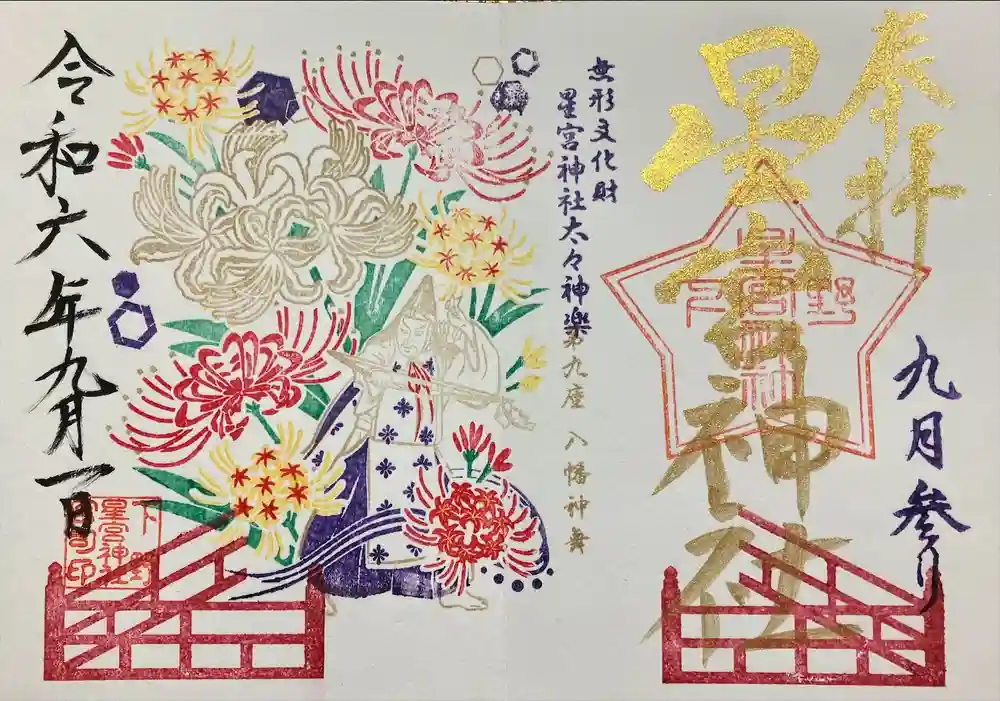 奉拝
星宮神社
下野
星宮
神社
九月参り
無形文化財
星宮神社太々神楽第九座 八幡神舞
令和六年九月一日
下野
星宮神社
之印